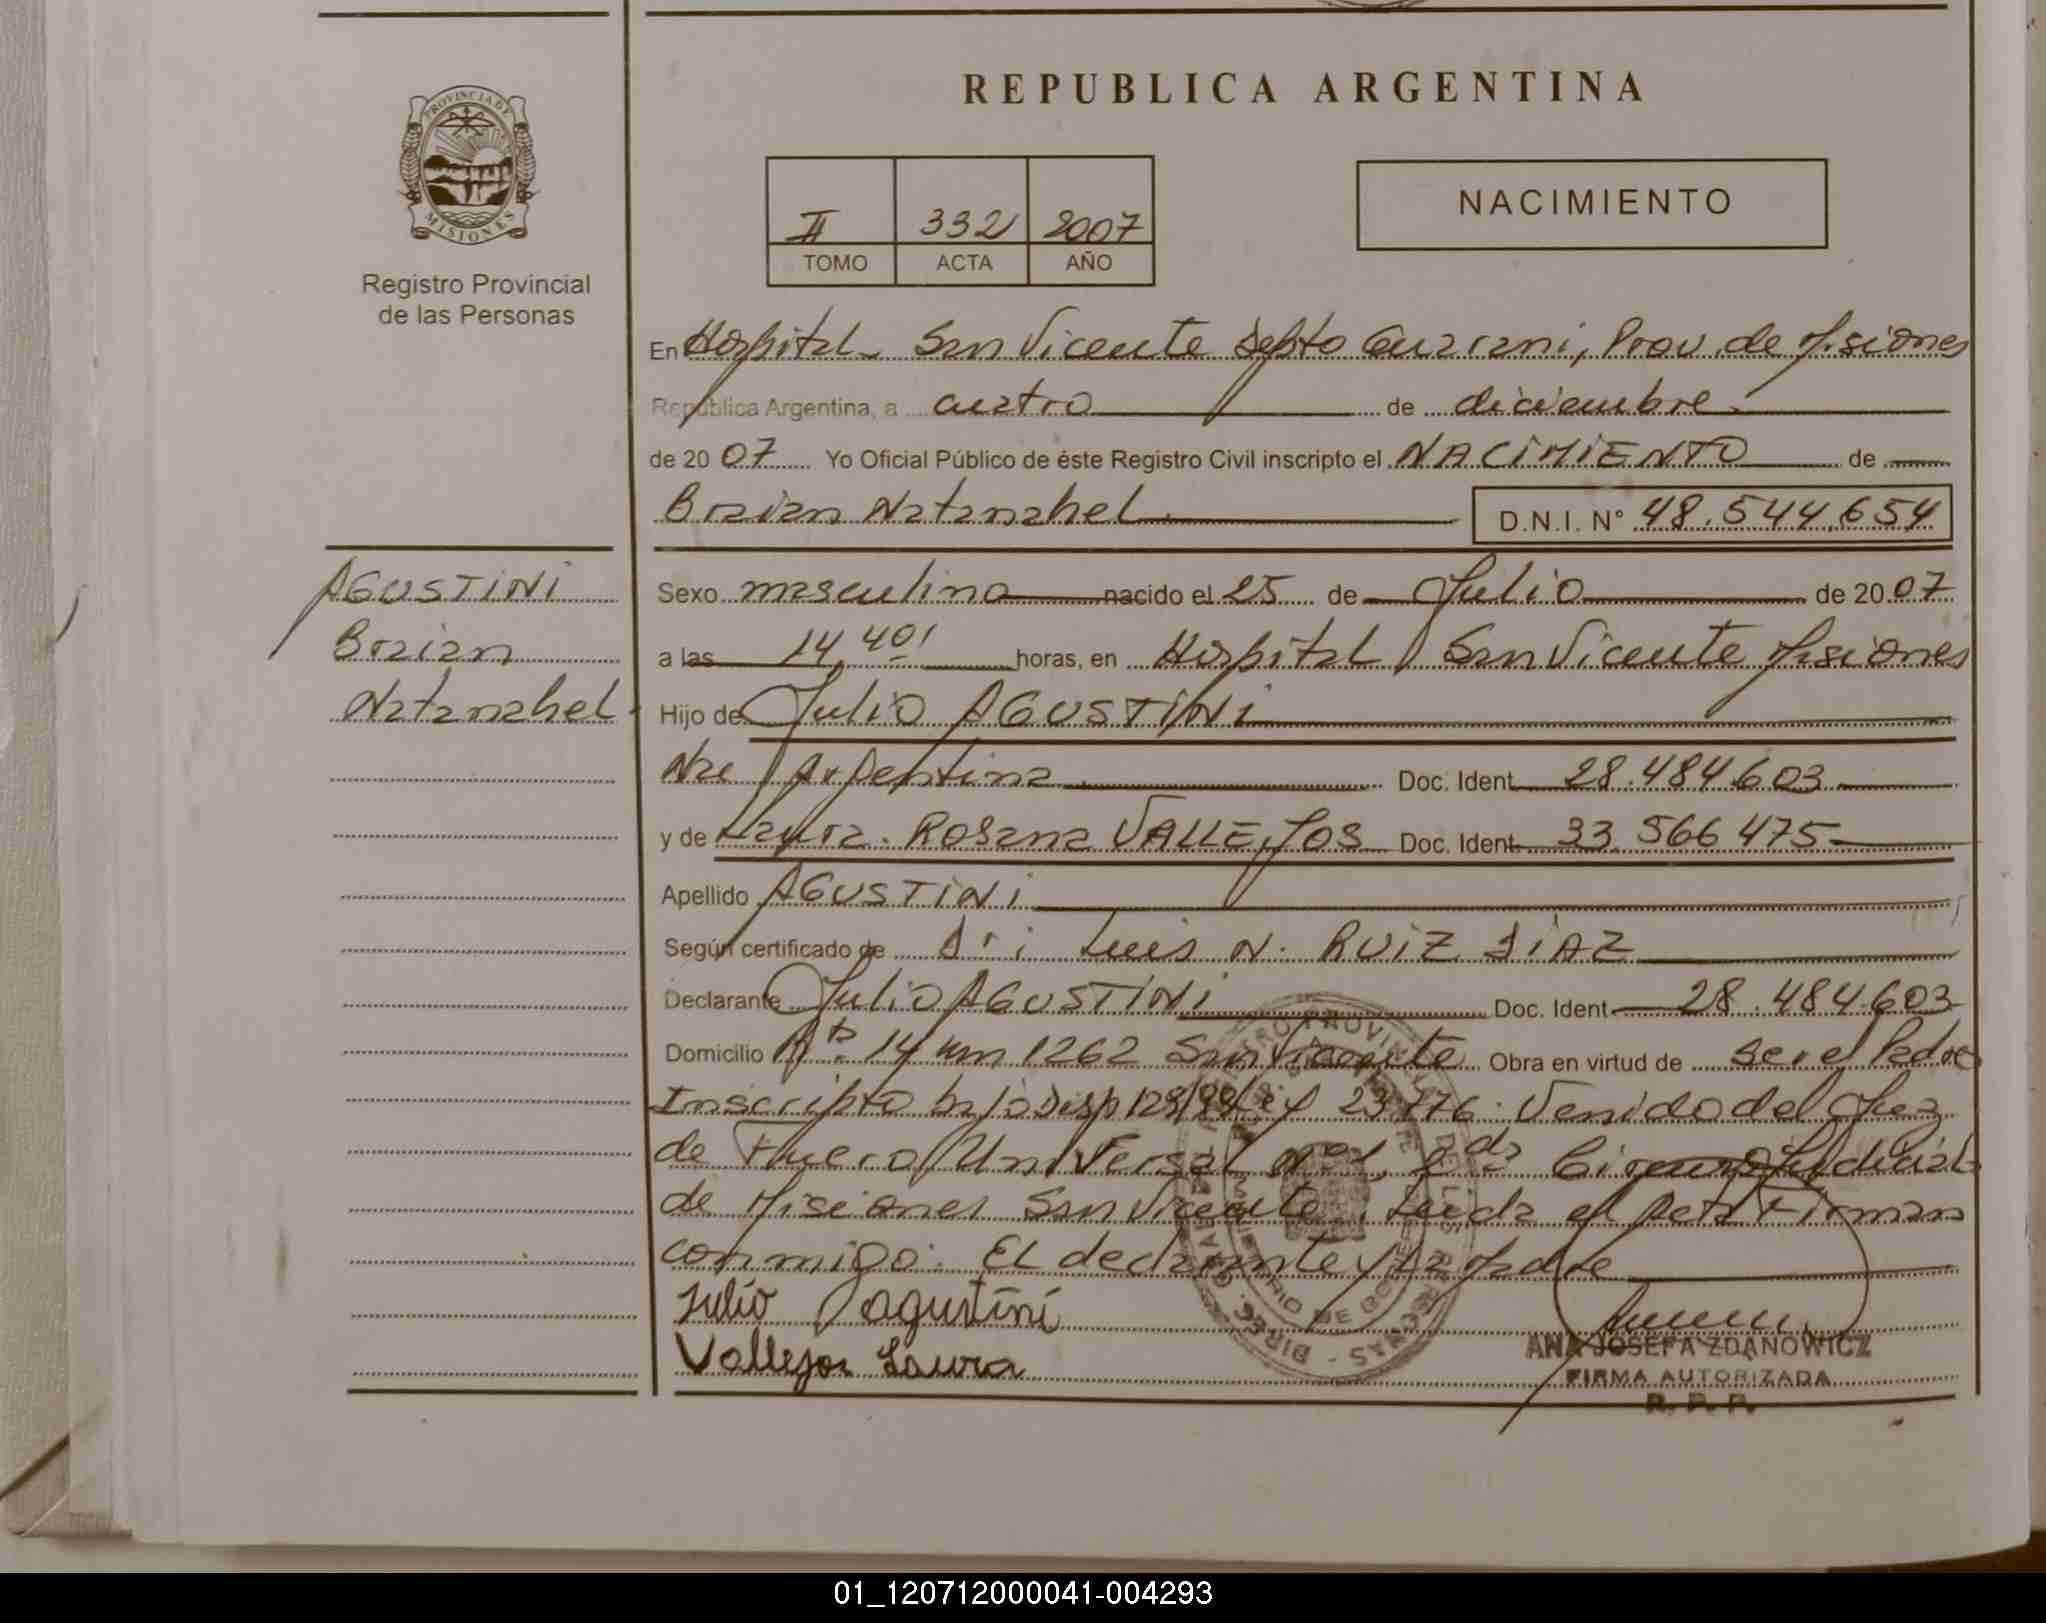 REPUBLICA ARGENTINA
PROVINCIA DE
MISIONES
Registro Provincial
de las Personas
II 332 2007
TOMO ACTA AÑO
NACIMIENTO
En Hospital San Vicente Depto Guarani, Prov. de Misiones
República Argentina, a cuatro de diciembre
de 20 07 Yo Oficial Público de éste Registro Civil inscripto el NACIMIENTO de
Braian Natanahel D.N.I. N° 48.544.654
AGUSTINI
Braian
Natanahel
Sexo masculino nacido el 25 de Julio de 20 07
a las 14,40' horas, en Hospital San Vicente Misiones
Hijo de Julio AGUSTINI
Nac Argentina Doc. Ident 28.484.603
y de Laura Rosana VALLEJOS Doc. Ident 33.566.475
Apellido AGUSTINI
Según certificado de Dr: Luis N. RUIZ DIAZ
Declarante Julio AGUSTINI Doc. Ident 28.484.603
Domicilio 14 km 1262 San Vicente Obra en virtud de ser el Padre
Inscripto bajo Disp 23776. Venido del Juez
de Fuero Universal nº1, 2da Judicial
de Misiones San Vicente. Leida el Acta Firman
conmigo: El declarante y la Madre
Julio agustini
Vallejos Laura
ANA JOSEFA ZDANOWICZ
FIRMA AUTORIZADA
R. P. P.
01_120712000041-004293